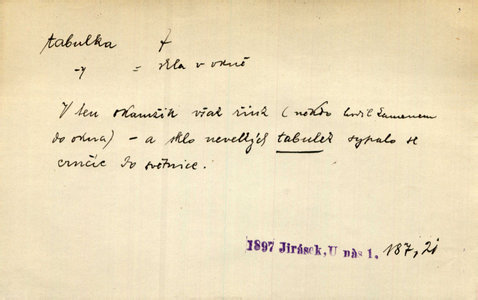 tabulka f
-y = skla v okně
V ten okamžik však řink (někdo hodil kamenem
do okna) – a sklo nevelkých tabulek sypalo se
crnčíc do světnice.
1897 Jirásek, U nás 1. 187, 21